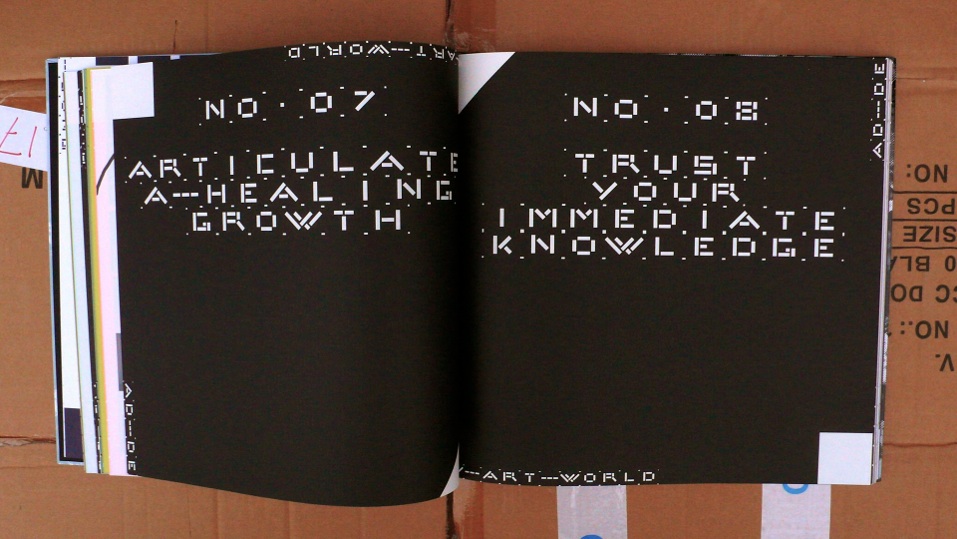 ART---WORLD
NO. 07
ARTICULATE
A---HEALING
GROWTH
NO. 08
TRUST
YOUR
IMMEDIATE
KNOWLEDGE
---ART---WORLD
NO:
PCS
SIZE
0 BLA
CC DO
NO.:
V.
M
17